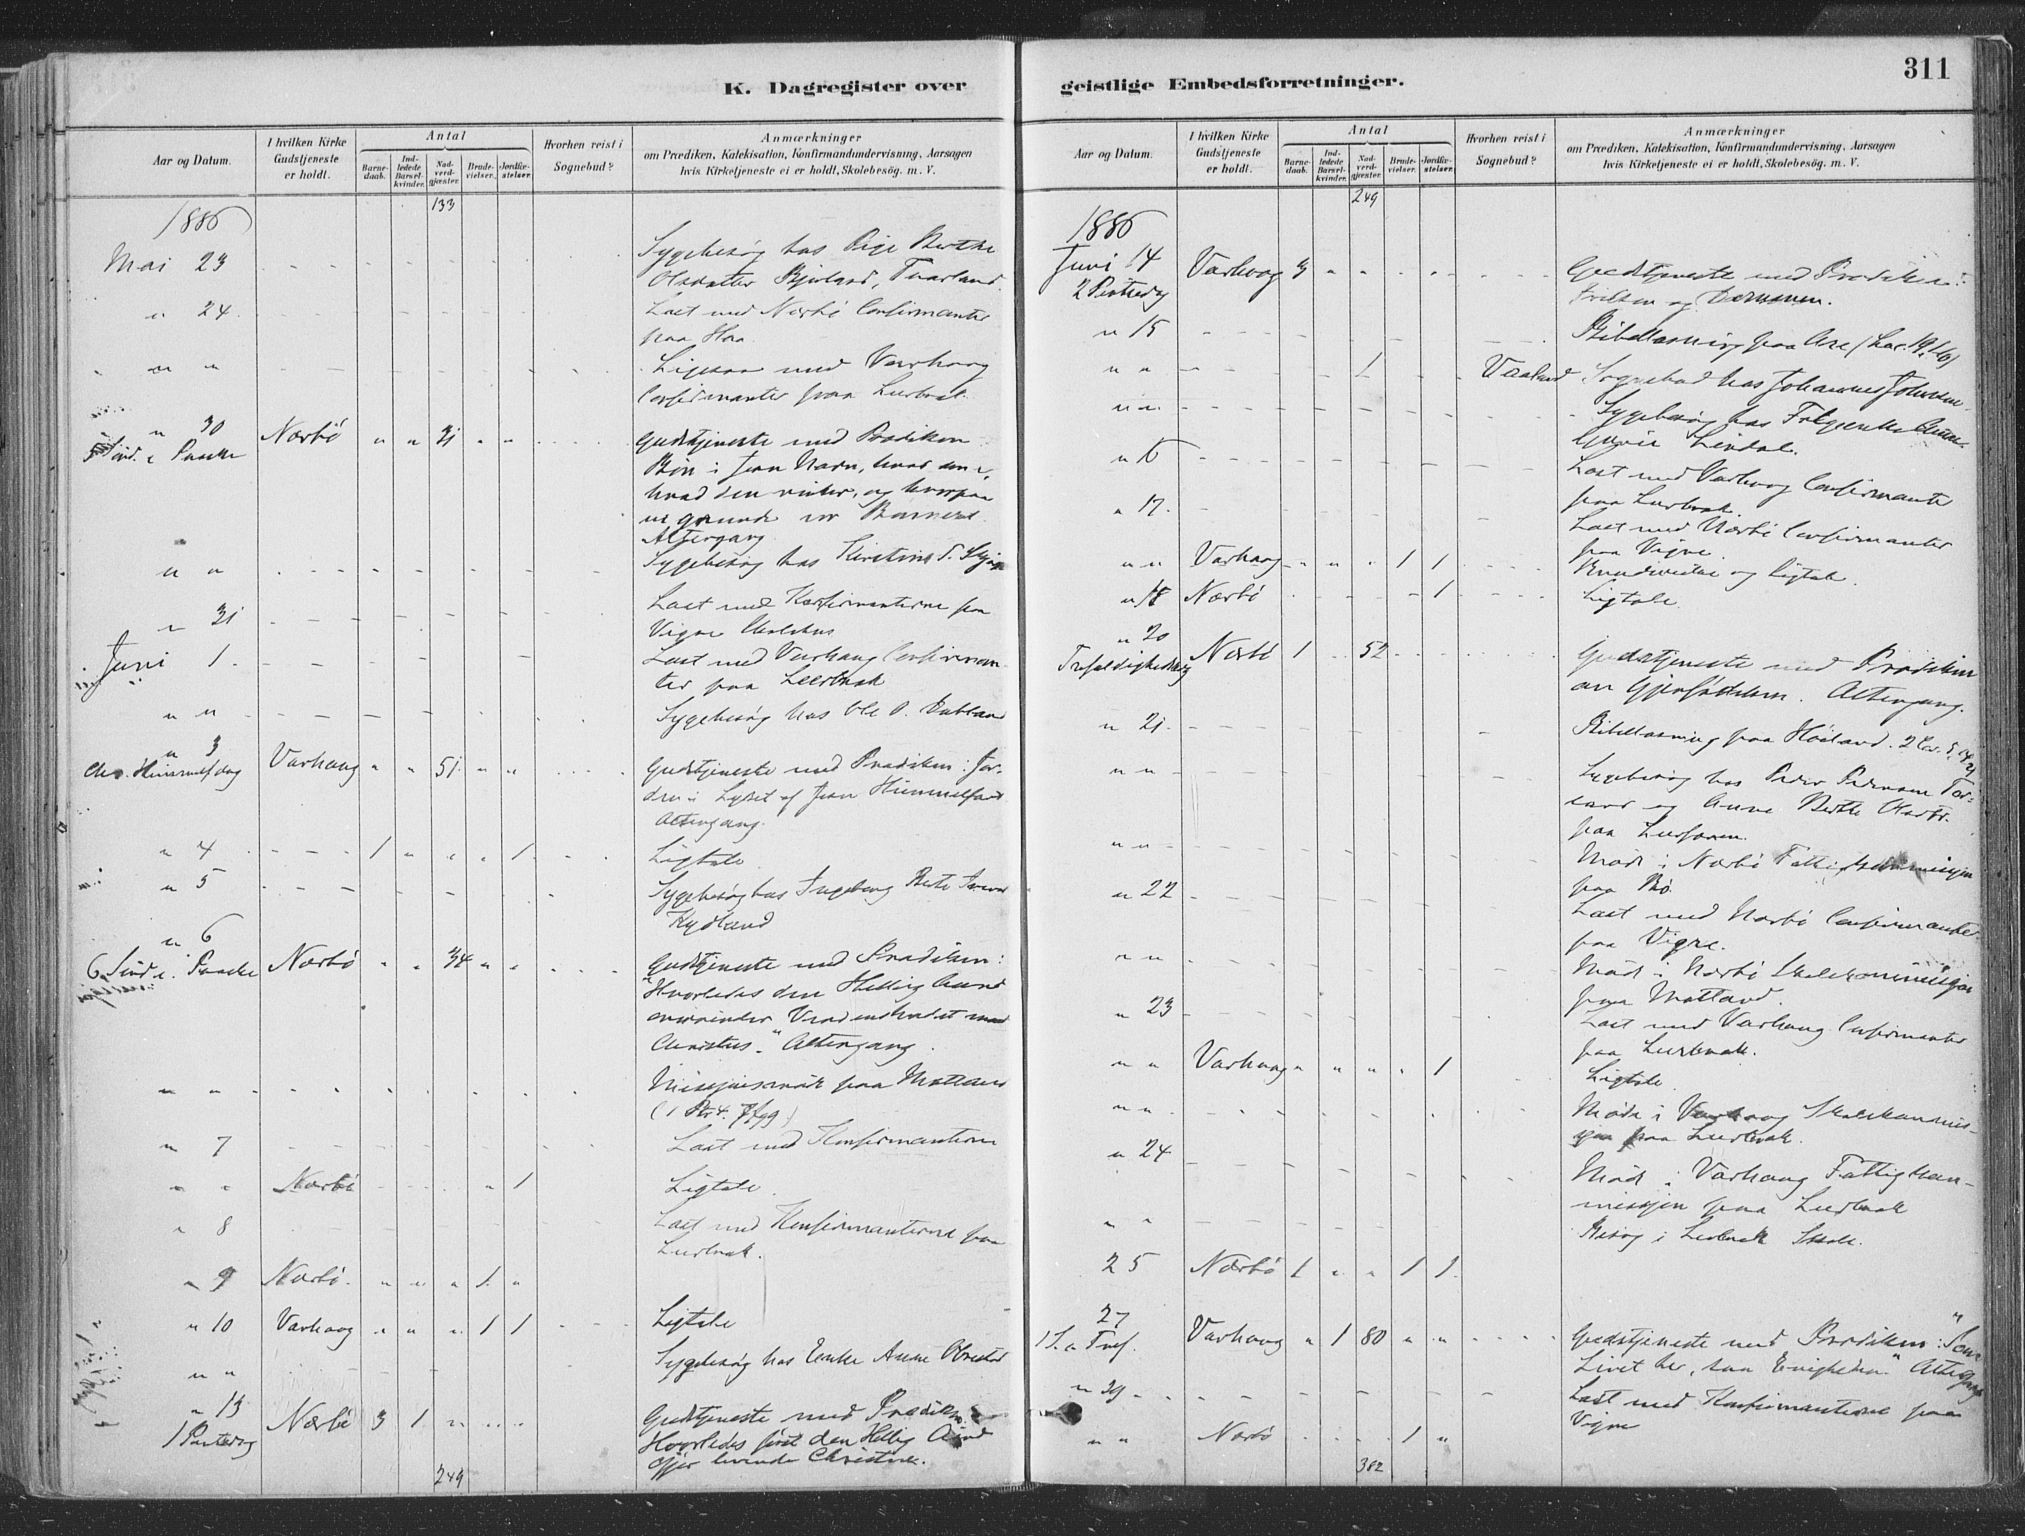 K. Dagregister over
Aar og Datum.
I hvilken Kirke Gudstjeneste er holdt.
Antal
Barne-daab.
Ind-ledede Barsel-kvinder.
Nad-verd-gjæster.
Brude-vielser.
Jordfæ-stelser.
Hvorhen reist i Sognebud?
Anmærkninger
om Prædiken, Katekisation, Konfirmandundervisning, Aarsagen
hvis Kirketjeneste ei er holdt, Skolebesög. m. V.
133
1886
Mai 23 Sygebesög hos Pige Berthe
Olsdatter Bjorland, Tvarland.
" 24. Læst med Nærbö Confirmanter
paa Hæa.
" " Ligesaa med Varhaug
Confirmanter paa Lerbrak.
" 30
5 Sönd. e. Paaske Nærbö " " 31 " " Gudstjeneste med Prædiken
Bön i Jesu Navn, hvad den er,
hvad den virker, og hvorpaa
Altergang
" " Sygebesög hos Kirstine S.
" 31 Læst med Konfirmanterne paa
Vigre Skolehus
Juni 1. Læst med Varhaug Confirman-
ter paa Leerbrak
" " Sygebesög hos Ole O.
" 3
Chr. Himmelfdag Varhaug " " 51 " " Gudstjeneste med Prædiken: Jor-
den i Lyset af Jesu Himmelfart
Altergang.
" 4 1 " " " 1 Ligtale
" 5 Sygebesög hos Ingeborg
" 6
6 Sönd e. Paaske Nærbö " " 34 " " Gudstjeneste med Prædiken:
"Hvorledes den Hellig Aand
overvinder Verdenshadet mod
Christus." Altergang.
" " Missjonsmöde paa Motland
(1 Ptr 4. 7 fgg.)
" 7 Læst med Konfirmanterne
" " Nærbö " 1 Ligtale.
" 8 Læst med Konfirmanterne paa
Leerbrak.
" 9 Nærbö. " " " 1. "
" 10 Varhaug " " " 1 1 Ligtale
" " Sygebesög hos Enke Anne Obrestad
" 13
1 Pintsedag Nærbö 3 1 " Gudstjeneste med Prædiken:
Hvorledes först den Hellig Aand
gjör levende Christne.
249
geistlige Embedsforretninger.
311
Aar og Datum.
I hvilken Kirke Gudstjeneste er holdt.
Antal
Barne-daab.
Ind-ledede Barsel-kvinder.
Nad-verd-gjæster.
Brude-vielser.
Jordfæ-stelser.
Hvorhen reist i Sognebud?
Anmærkninger
om Prædiken, Katekisation, Konfirmandundervisning, Aarsagen
hvis Kirketjeneste ei er holdt, Skolebesög. m. V.
249
1886
Juni 14
2 Pintsedag Varhaug 3 Gudstjeneste med Prædiken:
Frelsen og Dommen.
" 15 Bibellæsning paa Ree (Luc. 19,1-10)
" " 1 Varland Sognebud hos Johannes Johnsen
" " Sygebesög hos
Lindal.
" 16 Læst med Varhaug Confirmanter
paa Lerbrak.
" 17. Læst med Nærbö Confirmanter
paa Vigre.
" " Varhaug " " " 1 1 Brudevielse og Ligtale.
" 18 Nærbö 1 Ligtale.
" 20
Trefoldighedsdag Nærbö 1 52 Gudstjeneste med Prædiken
om Gjenfödelsen. Altergang.
" 21. Bibellæsning paa Höiland. 2 Cor. 5,
" " Sygebesög hos Peder Pedersen
og Anne Berthe
paa
" " Möde i Nærbö Fattigkommissjon
paa Bö.
" 22 Læst med Nærbö Confirmanter
paa Vigre.
" " Möde i Nærbö Skolekommissjon
paa Motland.
" 23 Læst med Varhaug Confirmanter
paa Leerbrak.
" " Varhaug " " " " 1 Ligtale
" " Möde i Varhaug Skolekommis-
sjon paa Leerbrak.
" 24 Möde i Varhaug Fattigkom-
missjon paa Leerbrak
" " Besög i Lerbrak Skole.
25 Nærbö 1 " " 1 1.
27
1 S. e. Tref. Varhaug " 1 80 " " Gudstjeneste med Prædiken: "Som
Livet her, saa Evigheden." Altergang
" 29 Læst med Konfirmanterne paa
Vigre
" " Nærbö 1 "
382